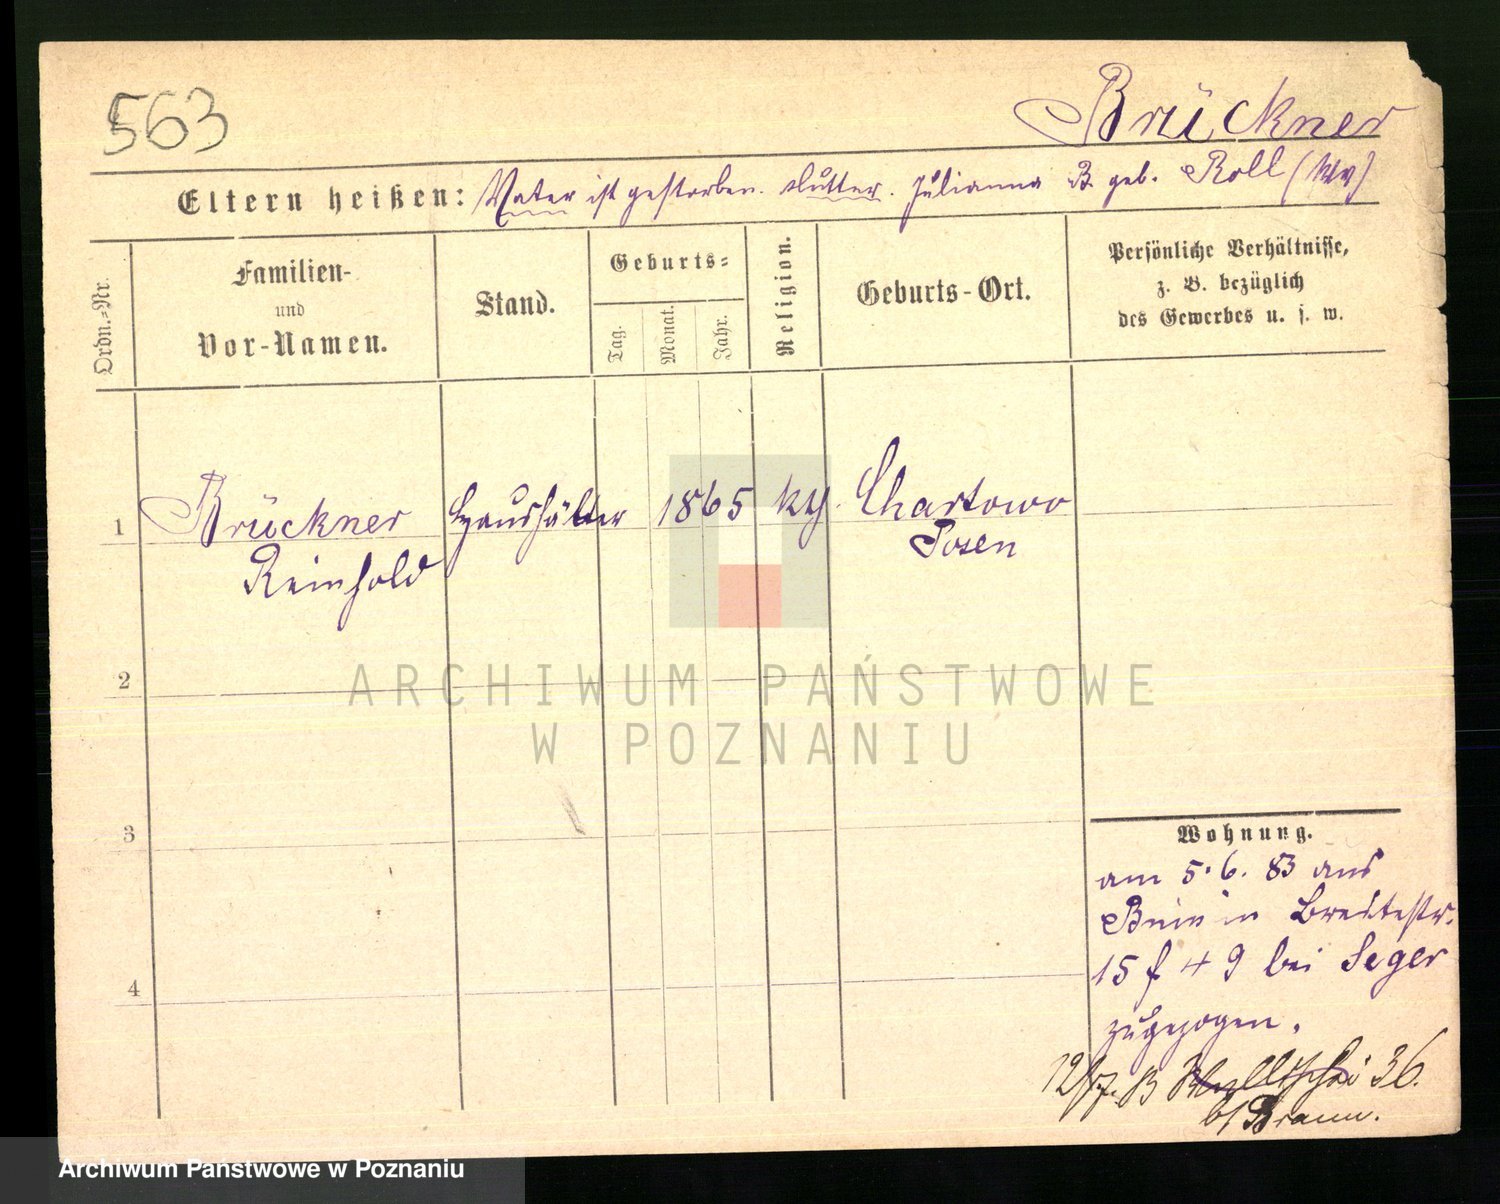 563
Brückner
Eltern heißen: Vater ist gestorben. Mutter. Julianna B. geb. Roll
Ordn.-Nr.
Familien-
und
Vor-Namen.
Stand.
Geburts-
Tag.
Monat.
Jahr.
Religion.
Geburts-Ort.
Persönliche Verhältnisse,
z. B. bezüglich
des Gewerbes u. s. w.
1 Brückner Haushälter 1865 Chartowo
Reinhold Posen
2
3
4
Wohnung.
am 5.6.83 aus
Bnin in Breitestr.
15 bei Seger
zugezogen.
36.
b/ Braun.
ARCHIWUM PAŃSTWOWE
W POZNANIU
Archiwum Państwowe w Poznaniu